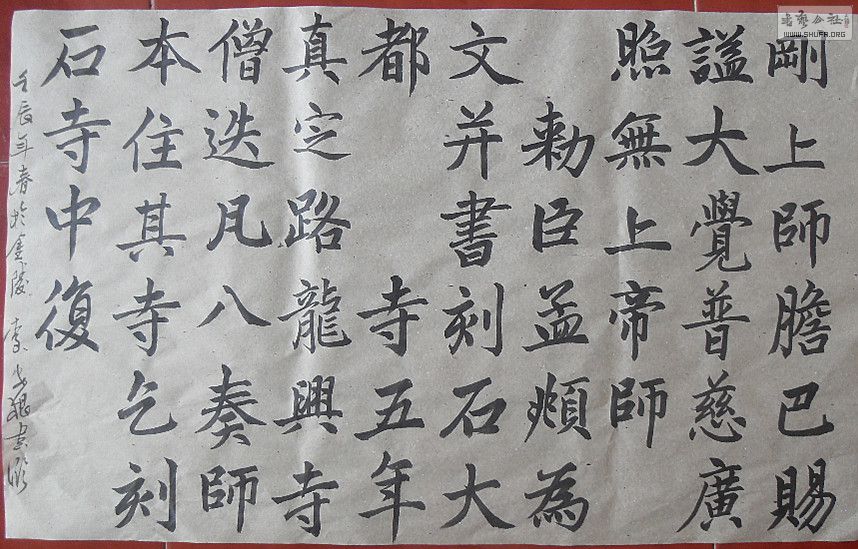 剛上師膽巴賜
謚大覺普慈廣
照無上帝師
勅臣孟頫為
文并書刻石大
都寺五年
真定路龍興寺
僧迭凡八奏師
本住其寺乞刻
石寺中復
壬辰年春於金陵 李
书艺公社
WWW.SHUFA.ORG